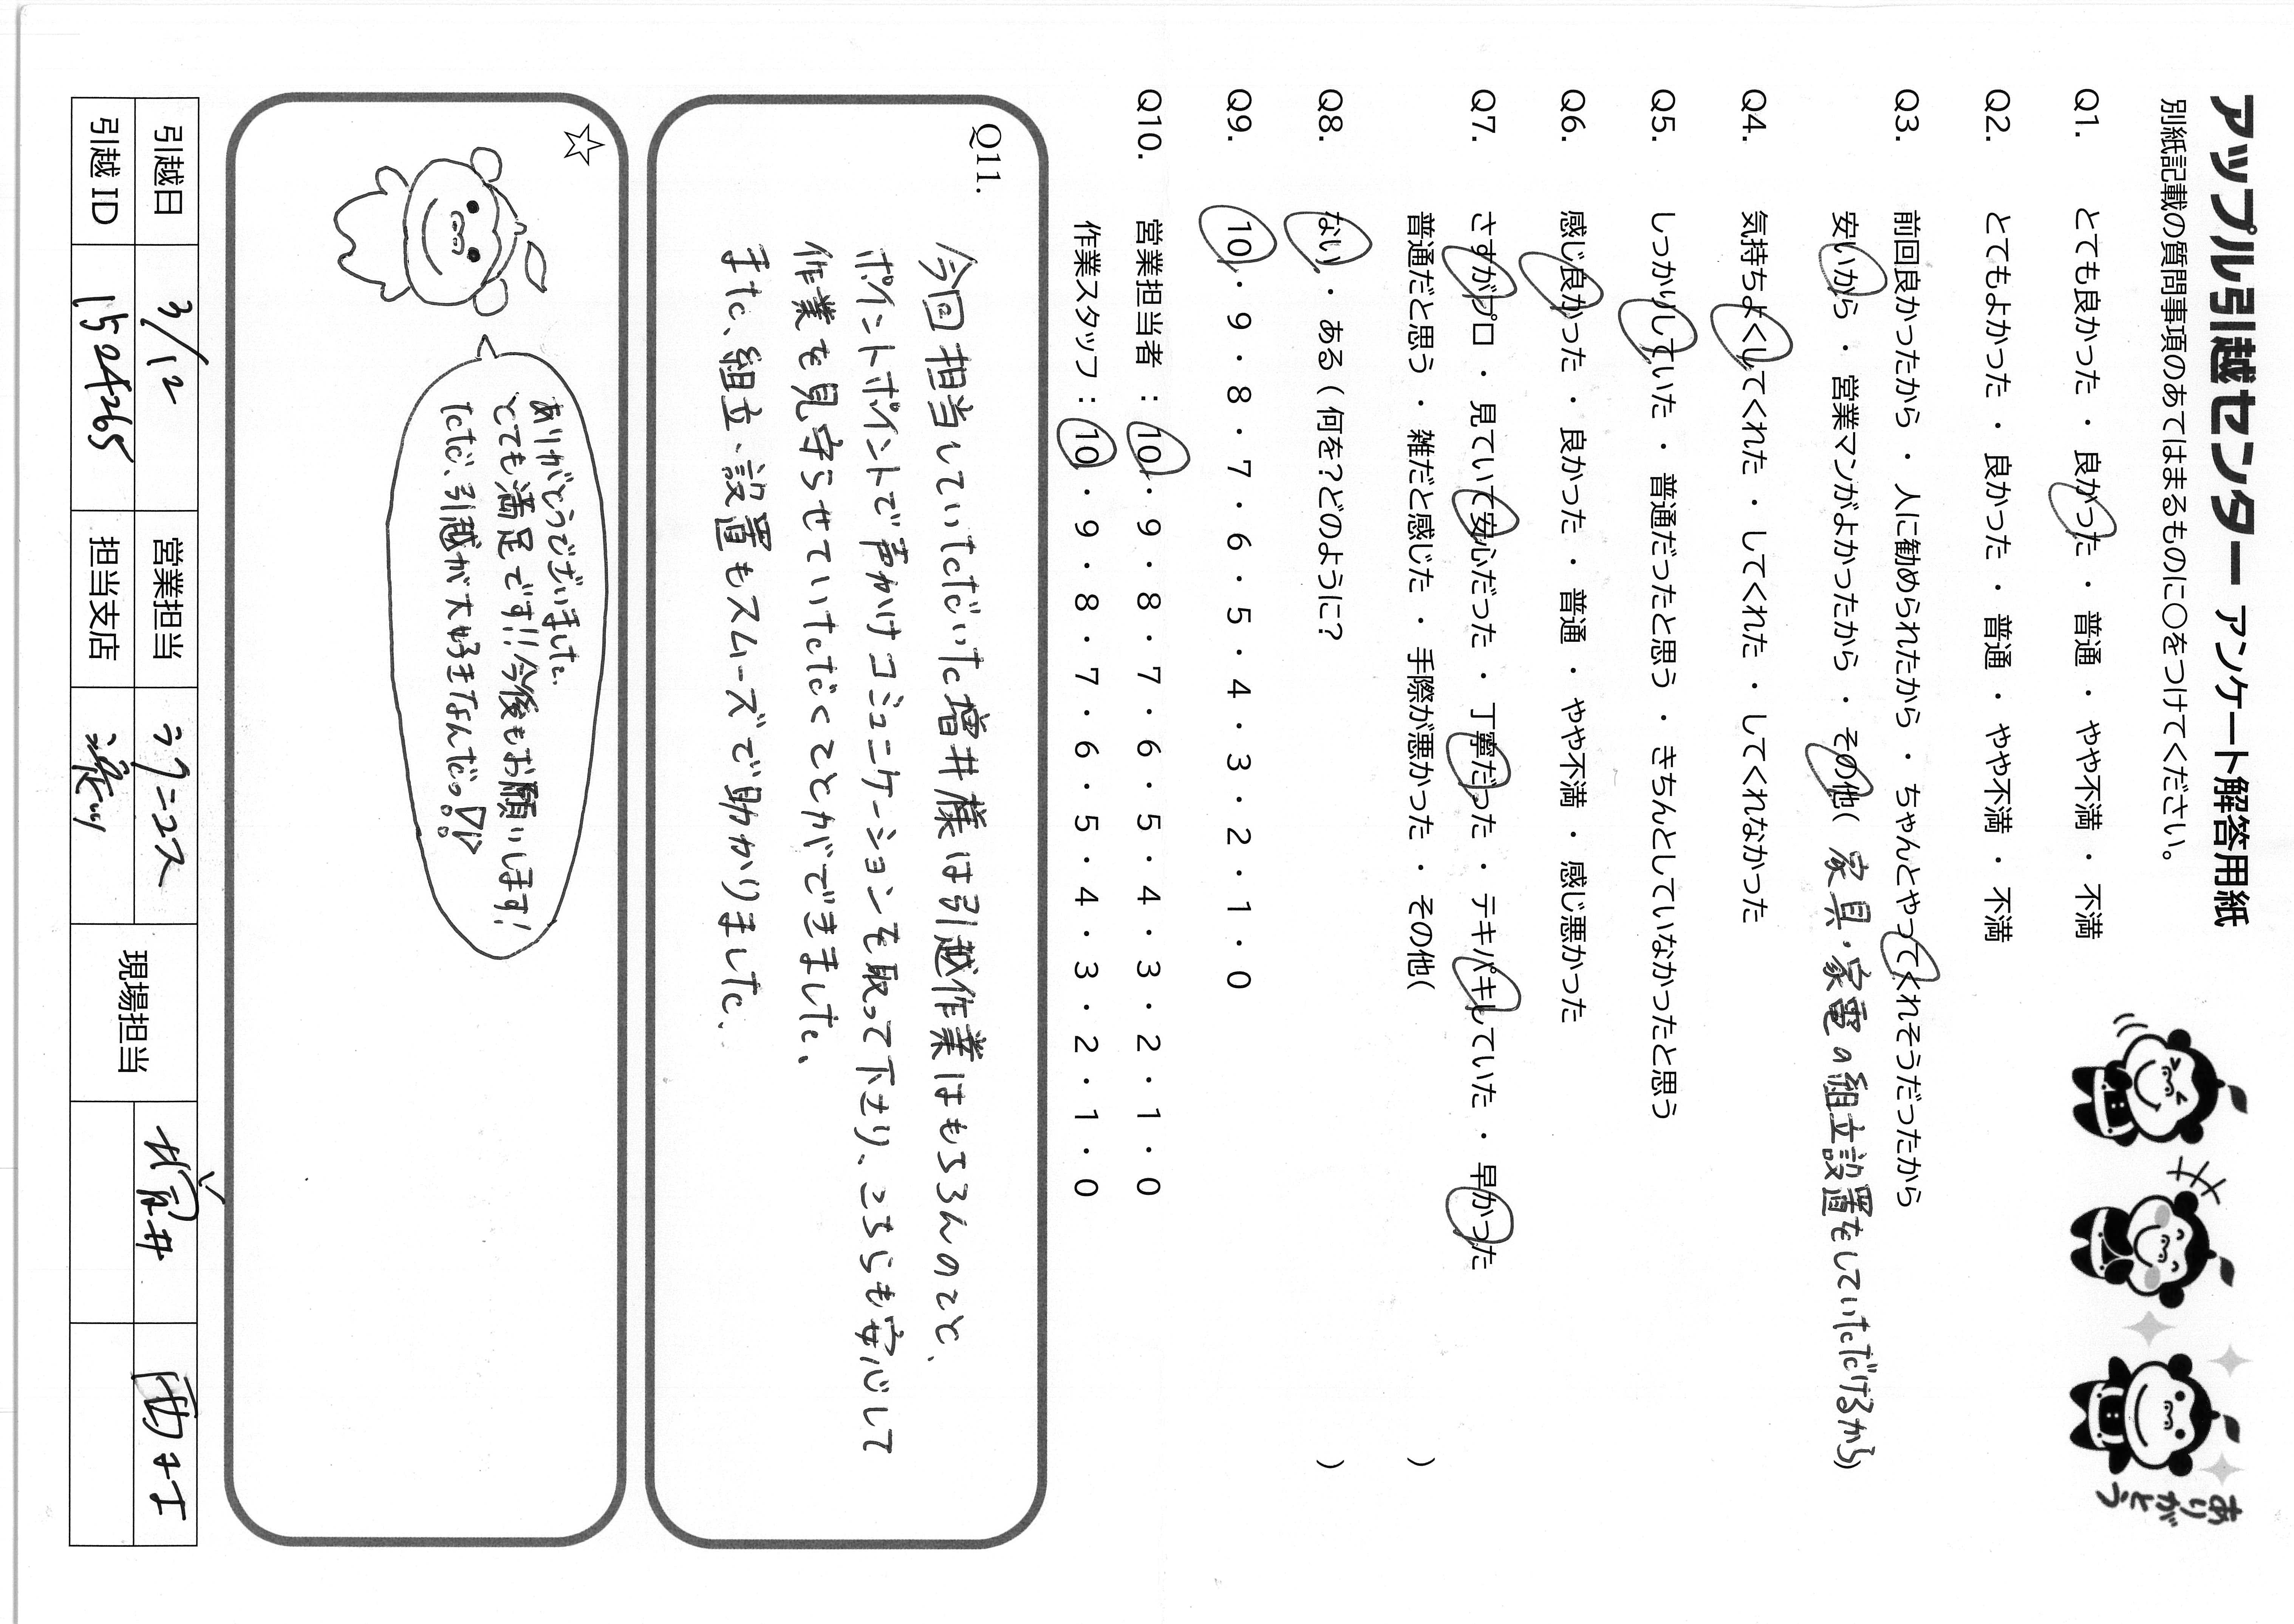 アップル引越センター アンケート解答用紙
別紙記載の質問事項のあてはまるものに○をつけてください。
ありがとう
Q1. とても良かった ・ 良かった ・ 普通 ・ やや不満 ・ 不満
Q2. とてもよかった ・ 良かった ・ 普通 ・ やや不満 ・ 不満
Q3. 前回良かったから ・ 人に勧められたから ・ ちゃんとやってくれそうだったから
安いから ・ 営業マンがよかったから ・ その他( 家具・家電の組立設置をしていただけるから)
Q4. 気持ちよくしてくれた ・ してくれた ・ してくれなかった
Q5. しっかりしていた ・ 普通だったと思う ・ きちんとしていなかったと思う
Q6. 感じ良かった ・ 良かった ・ 普通 ・ やや不満 ・ 感じ悪かった
Q7. さすがプロ ・ 見ていて安心だった ・ 丁寧だった ・ テキパキしていた ・ 早かった
普通だと思う ・ 雑だと感じた ・ 手際が悪かった ・ その他( )
Q8. ない ・ ある ( 何を?どのように? )
Q9. 10 ・ 9 ・ 8 ・ 7 ・ 6 ・ 5 ・ 4 ・ 3 ・ 2 ・ 1 ・ 0
Q10. 営業担当者 : 10 ・ 9 ・ 8 ・ 7 ・ 6 ・ 5 ・ 4 ・ 3 ・ 2 ・ 1 ・ 0
作業スタッフ : 10 ・ 9 ・ 8 ・ 7 ・ 6 ・ 5 ・ 4 ・ 3 ・ 2 ・ 1 ・ 0
Q11.
今回担当していただいた増井様は引越作業はもちろんのこと、
ポイントポイントで声かけコミュニケーションを取って下さり、こちらも安心して
作業を見守らせていただくことができました、
また、組立、設置もスムーズで助かりました、
☆
ありがとうございました。
とても満足です!!今後もお願いします!
ただ、引越が大好きなんだっ!!
引越日 3/12 営業担当 現場担当 増井
引越ID 1524265 担当支店